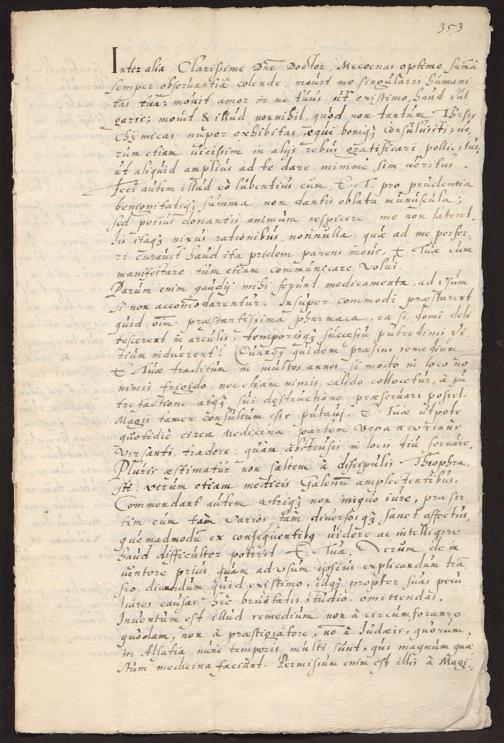 353
Inter alia, Clarissime Dne Doctor, Mecoenas optime, summa
semper observantia colende, movit me singularis humani
tas tua; movit amor in me tuus ut existimo, haud vul
garis; movit & illud nonnihil, quod non tantum Theses
Chymicas nuper exhibitas aequi boniq3 consuluisti; ve
rum etiam vicissim in alijs rebus gratificari pollicitus
ut aliquid amplius ad te dare, minime sim veritus.
Feci autem illud eo lubentius cum E. T. pro prudentia
benignitateq3 summa, non dantis oblata munuscula;
sed potius donantis animum respicere, me non lateret.
His itaq3 nixus rationibus nonnulla, quae ad me perfer
ri curavit haud ita pridem parens meus, E. Tuae cum
manifestare tum etiam communicare volui.
Parum enim gaudij mihi ferunt medicamenta, ad usum
si non accomodarentur. Insuper commodi praestarent
quid oim praestantissima pharmaca, ea si domi deli
tescerent in arculis, temporisq3 successu putredinis vi
tium induerent? Quanq3 quidem praesens remedium
E. Tuae traditum in multos annos si modo in loco no
nimis frigido nec etiam nimis calido collocetur, à pu
trefactione atq3 sui destructione praeservari posset.
Magis tamen consultum esse putavi, E. Tuae utpote
quotidie circa Medicinae partem
versanti, tradere, quam abstrusis in locis diu servare.
Pluris aestimatur non saltem à discipulis Theophra
sti: verum etiam medicis Galenum amplectentibus.
Commendant autem utriq3 non iniquo iure, praeser
tim cum tam varios tam diversosq3 sanet affectus,
quemadmodu ex consequentibq videre ac intelligere
haud difficulter poterit E. Tua. Verum de in
ventore prius quam ad usum ipsius explicandum tra
seo, dicendum quid existimo, idq3 propter suas pecu
liares causas, hic brevitatis studio omittendas.
Inventum est illud remedium non à circumforaneo
quodam, non à praestigiatore, nō à Iudaeis, quorum,
in Alsatia nunc temporis multi sunt, qui magnum quae
stum medicina faciunt. Permissum enim est illis à Magi-